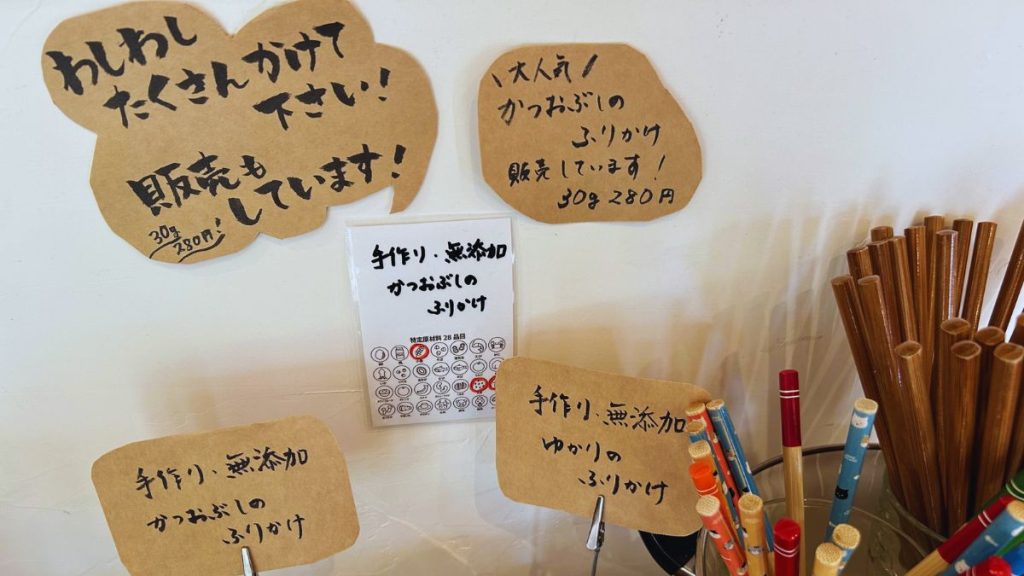 わしわし
たくさんかけて
下さい!
販売も
しています!
30g
280円!
\大人気/
かつおぶしの
ふりかけ
販売しています!
30g 280円
手作り・無添加
かつおぶしの
ふりかけ
特定原材料28品目
手作り・無添加
かつおぶしの
ふりかけ
手作り・無添加
ゆかりの
ふりかけ